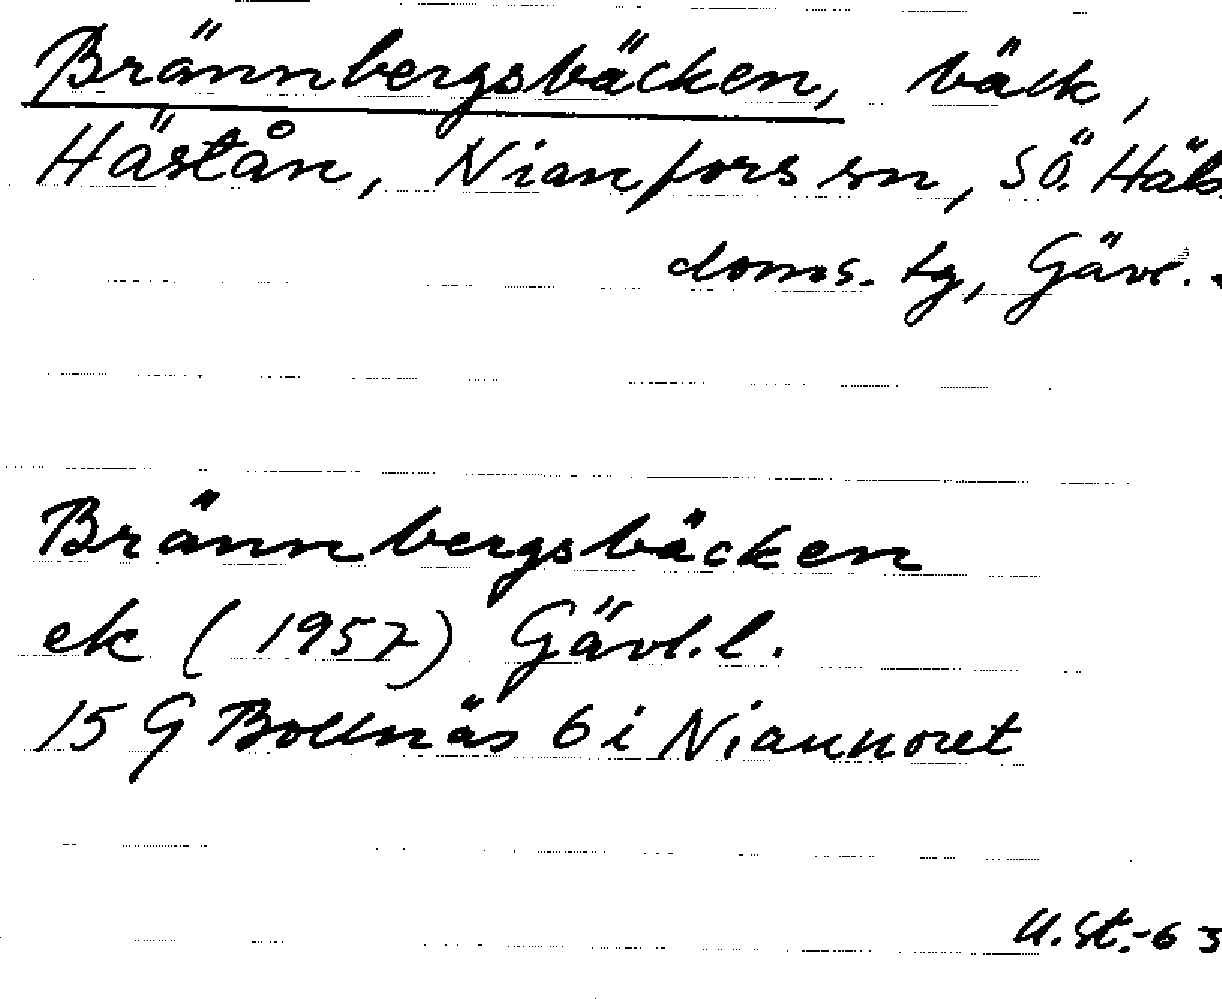 Brännbergsbäcken, bäck,
Hästån, Nianfors sn, SÖ. Häls.
doms. tg, Gävl.
Brännbergsbäcken
ek (1957) Gävl.l.
15 G Bollnäs 6 i Niannoret
U.St.-63